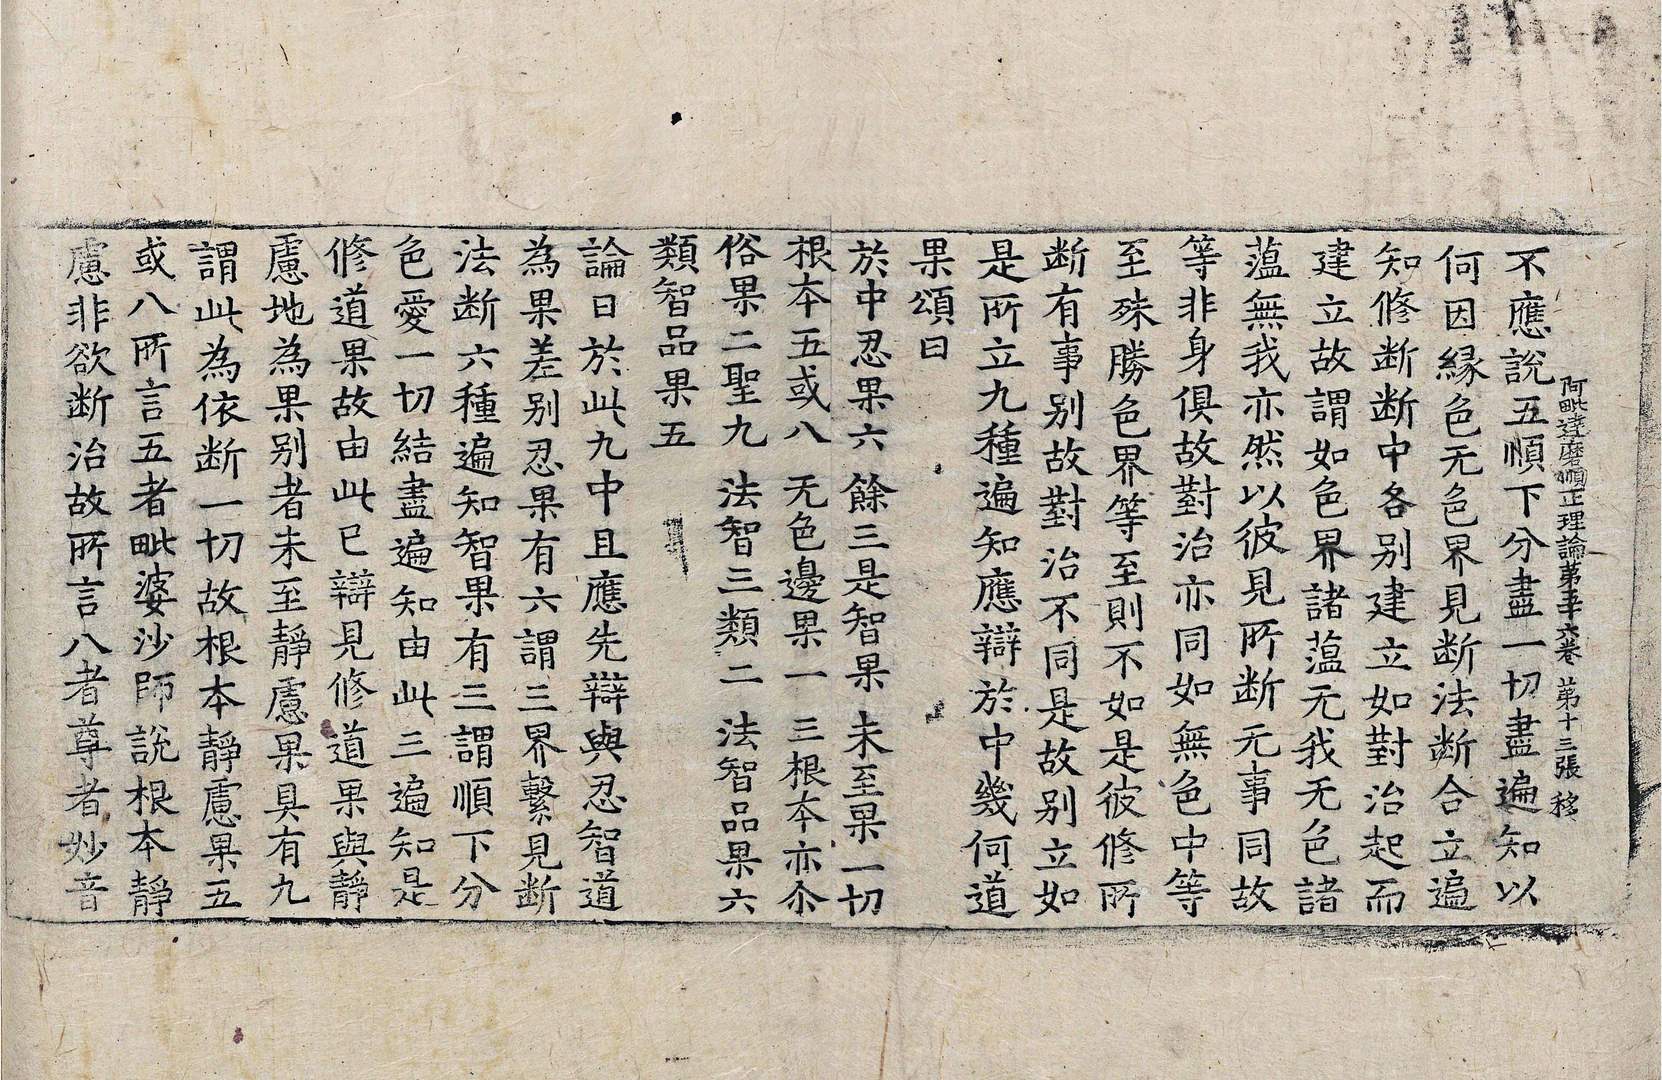 阿毗達磨順正理論第五十六卷 第十三張 移
不應說五順下分盡一切盡遍知以
何因緣色无色界見断法断合立遍
知修断断中各别建立如對治起而
建立故謂如色界諸薀无我无色諸
薀無我亦然以彼見所断无事同故
等非身俱故對治亦同如無色中等
至殊勝色界等至則不如是彼修所
断有事别故對治不同是故别立如
是所立九種遍知應辯於中幾何道
果頌曰
於中忍果六 餘三是智果 未至果一切
根本五或八 无色邊果一 三根本亦尒
俗果二聖九 法智三類二 法智品果六
類智品果五
論曰於此九中且應先辯與忍智道
為果差别忍果有六謂三界繫見断
法断六種遍知智果有三謂順下分
色愛一切結盡遍知由此三遍知是
修道果故由此已辯見修道果與靜
慮地為果别者未至靜慮果具有九
謂此為依断一切故根本靜慮果五
或八所言五者毗婆沙師說根本靜
慮非欲断治故所言八者尊者妙音